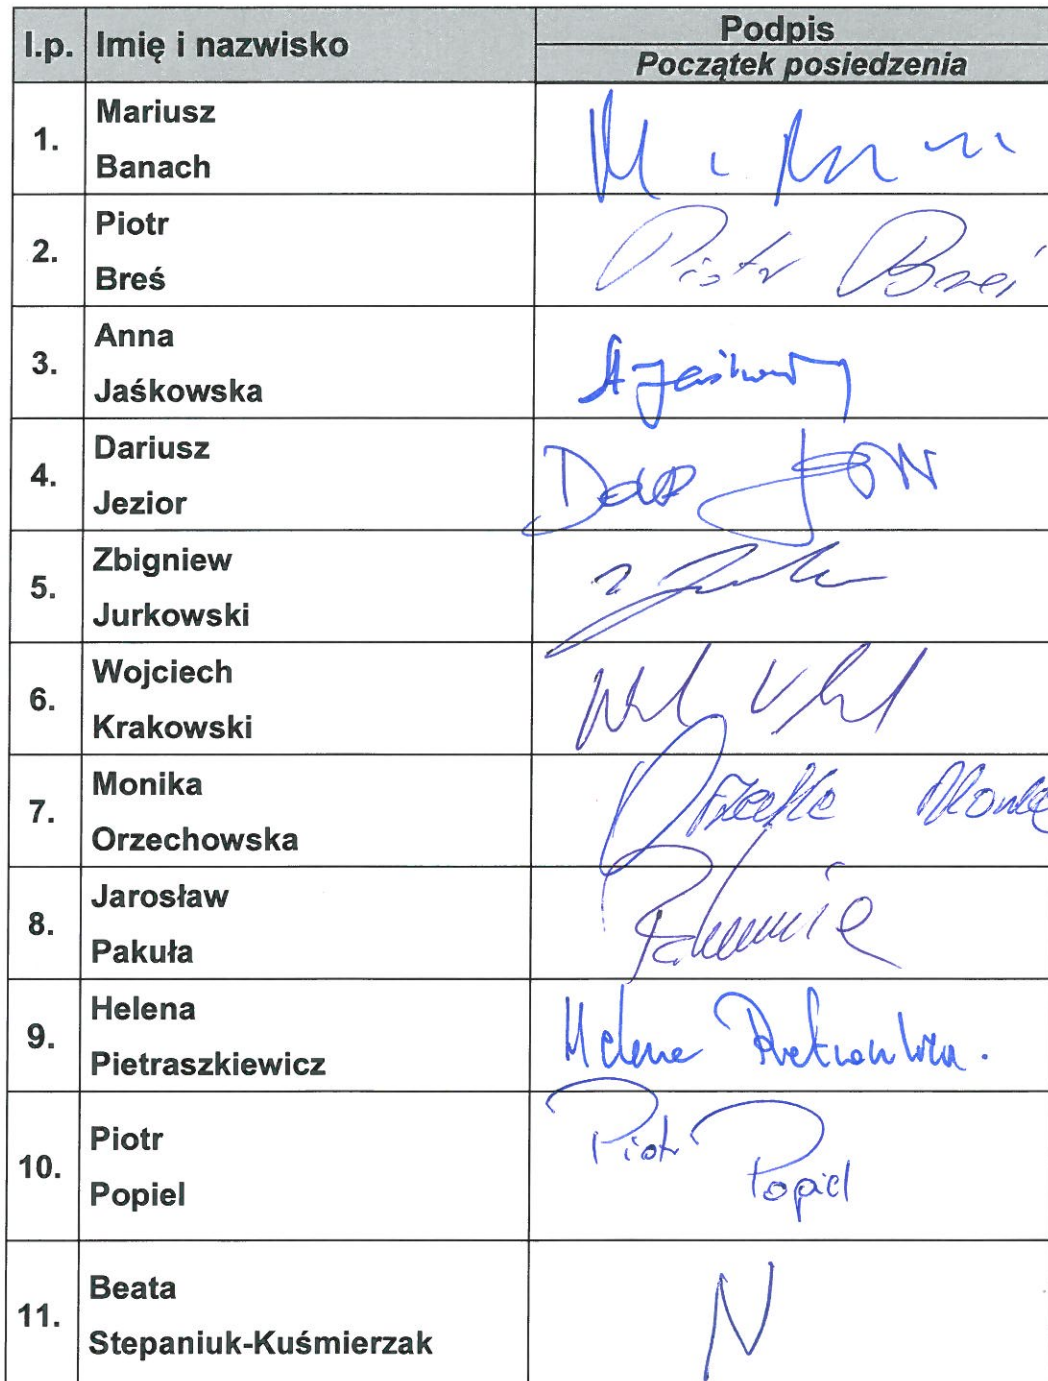 l.p. Imię i nazwisko Podpis
Początek posiedzenia
1. Mariusz
Banach
2. Piotr
Breś
Piotr Breś
3. Anna
Jaśkowska
4. Dariusz
Jezior
5. Zbigniew
Jurkowski
6. Wojciech
Krakowski
7. Monika
Orzechowska
8. Jarosław
Pakuła
9. Helena
Pietraszkiewicz
Helena
10. Piotr
Popiel
Piotr
Popiel
11. Beata
Stepaniuk-Kuśmierzak
N